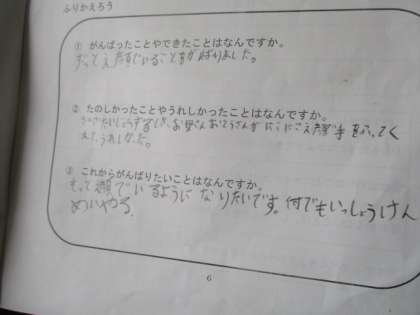 ふりかえろう
① がんばったことやできたことはなんですか。
ずっとえ顔でいることをがんばりました。
② たのしかったことやうれしかったことはなんですか。
お母さんおとうさんがにこにこえ顔で手をふってく
れて、うれしかった。
③ これからがんばりたいことはなんですか。
もっと顔でいるようになりたいです。何でもいっしょうけん
めいやる。
6